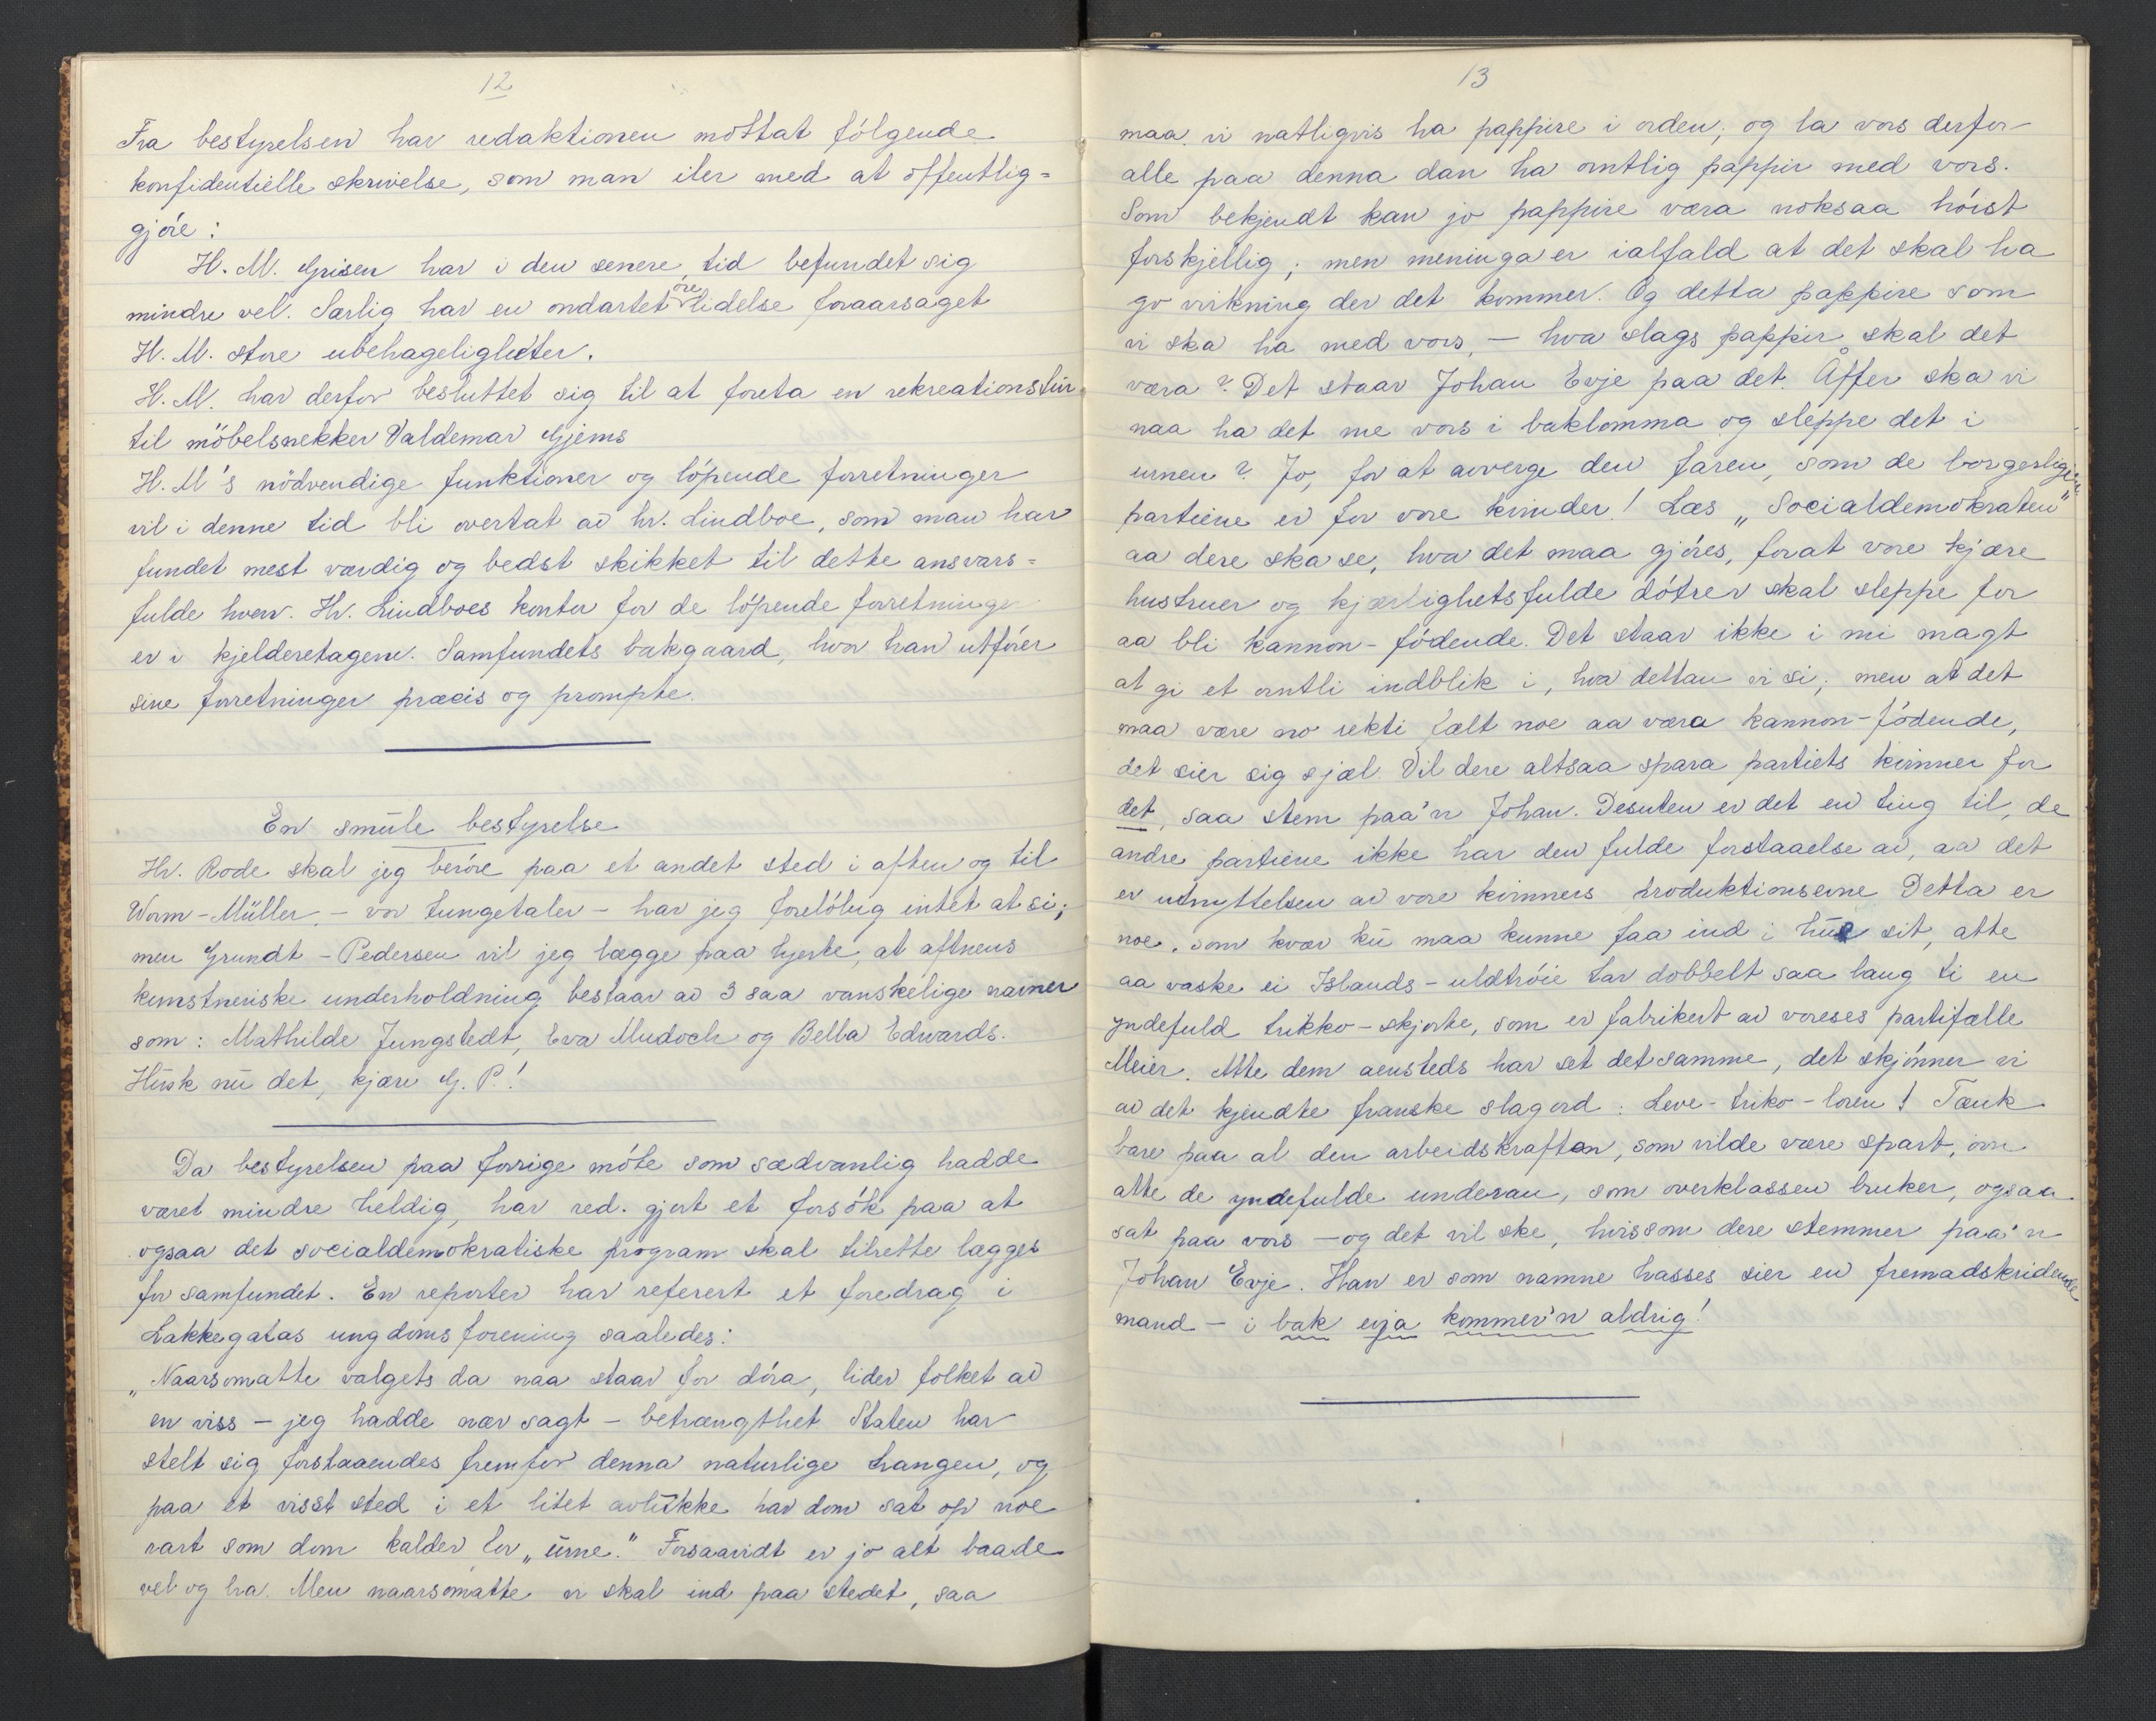 12
Fra bestyrelsen har redaktionen mottat følgende
konfidentielle skrivelse, som man iler med at offentlig-
gjøre:
H. M. Grisen har i den senere tid befundet sig
mindre vel. Særlig har en ondartet øre lidelse foraarsaget
H. M. store ubehageligheter.
H. M. har derfor besluttet sig til at foreta en rekreationstur
til møbelsnekker Valdemar Gjems
H. M's nødvendige funktioner og løpende forretninger
vil i denne tid bli overtat av hr. Lindboe, som man har
fundet mest værdig og bedst skikket til dette ansvars-
fulde hverv. Hr. Lindboes kontor for de løpende forretninger
er i kjelderetagen. Samfundets bakgaard, hvor han utfører
sine forretninger præcis og prompte.
En smule bestyrelse
Hr. Rode skal jeg berøre paa et andet sted i aften og til
Worm-Müller, - vor tungetaler - har jeg foreløbig intet at si;
men Grundt-Pedersen vil jeg lægge paa hjerte, at aftnens
kunstneriske underholdning bestaar av 3 saa vanskelige navner
som: Mathilde Jungstedt, Eva Mudoch og Bella Edwards.
Husk nu det, kjære G. P.!
Da bestyrelsen paa forrige møte som sædvanlig hadde
været mindre heldig, har red. gjort et forsøk paa at
ogsaa det socialdemokratiske program skal tilrette lægges
for samfundet. En reporter har referert et foredrag i
Lakkegatas ungdomsforening saaledes:
"Naarsomatte valgets da naa staar for døra, lider folket av
en viss - jeg hadde nær sagt - betrængthet. Staten har
stelt sig forstaaendes fremfor denna naturlige trangen, og
paa et visst sted i et litet avlukke har dom sat op noe
rart som dom kalder for "urne." Forsaavidt er jo alt baade
vel og bra. Men naarsomatte vi skal ind paa stedet, saa
13
maa vi natligvis ha pappire i orden; og la vors derfor
alle paa denna dan ha orntlig pappir med vors.
Som bekjendt kan jo pappire væra noksaa høist
forskjellig; men meninga er ialfald at det skal ha
go virkning der det kommer. Og detta pappire som
vi ska ha med vors, - hva slags pappir skal det
væra? Det staar Johan Evje paa det. Åffer ska vi
naa ha det me vors i baklomma og sleppe det i
urnen? Jo, for at avverge den faren, som de borgerlige
partiene er for vore kvinder! Læs "Socialdemokraten"
aa dere ska se, hva det maa gjøres, forat vore kjære
hustruer og kjærlighetsfulde døtrer skal sleppe for
aa bli kannon-fødende. Det staar ikke i mi magt
at gi et orntli indblik i, hva dettan vi si; men at det
maa være no rekti fælt noe aa væra kannon-fødende,
det sier sig sjæl. Vil dere altsaa spara partiets kvinner for
det, saa stem paa'n Johan. Desuten er det en ting til, de
andre partiene ikke har den fulde forstaaelse av, aa det
er utnyttelsen av vore kvinners produktionsevne. Detta er
noe, som kvær ku maa kunne faa ind i hue sit, atte
aa vaske ei Islands-uldtrøie tar dobbelt saa lang ti en
yndefuld trikko-skjorte, som er fabrikert av voreses partifælle
Meier. Atte dem aensteds har set det samme, det skjønner vi
av det kjendte franske slagord: Leve-triko-loren! Tænk
bare paa al den arbeidskraften, som vilde være spart, om
atte de yndefulde underan, som overklassen bruker, ogsaa
sat paa vors - og det vil ske, hvissom dere stemmer paa'n
Johan Evje. Han er som namne hasses sier en fremadskridende
mand - i bak evja kommer'n aldrig!